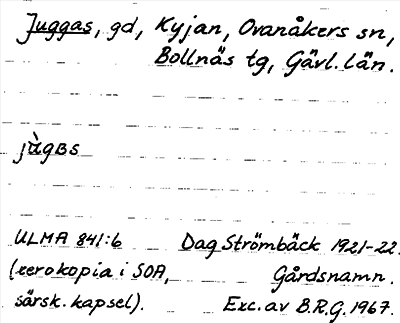 Juggas, gd, Kyjan, Ovanåkers sn,
Bollnäs tg, Gävl. län.
jùgʙs
ULMA 841:6 Dag Strömbäck 1921-22.
(xerokopia i SOA, Gårdsnamn.
särsk. kapsel). Exc. av B.R.G. 1967.